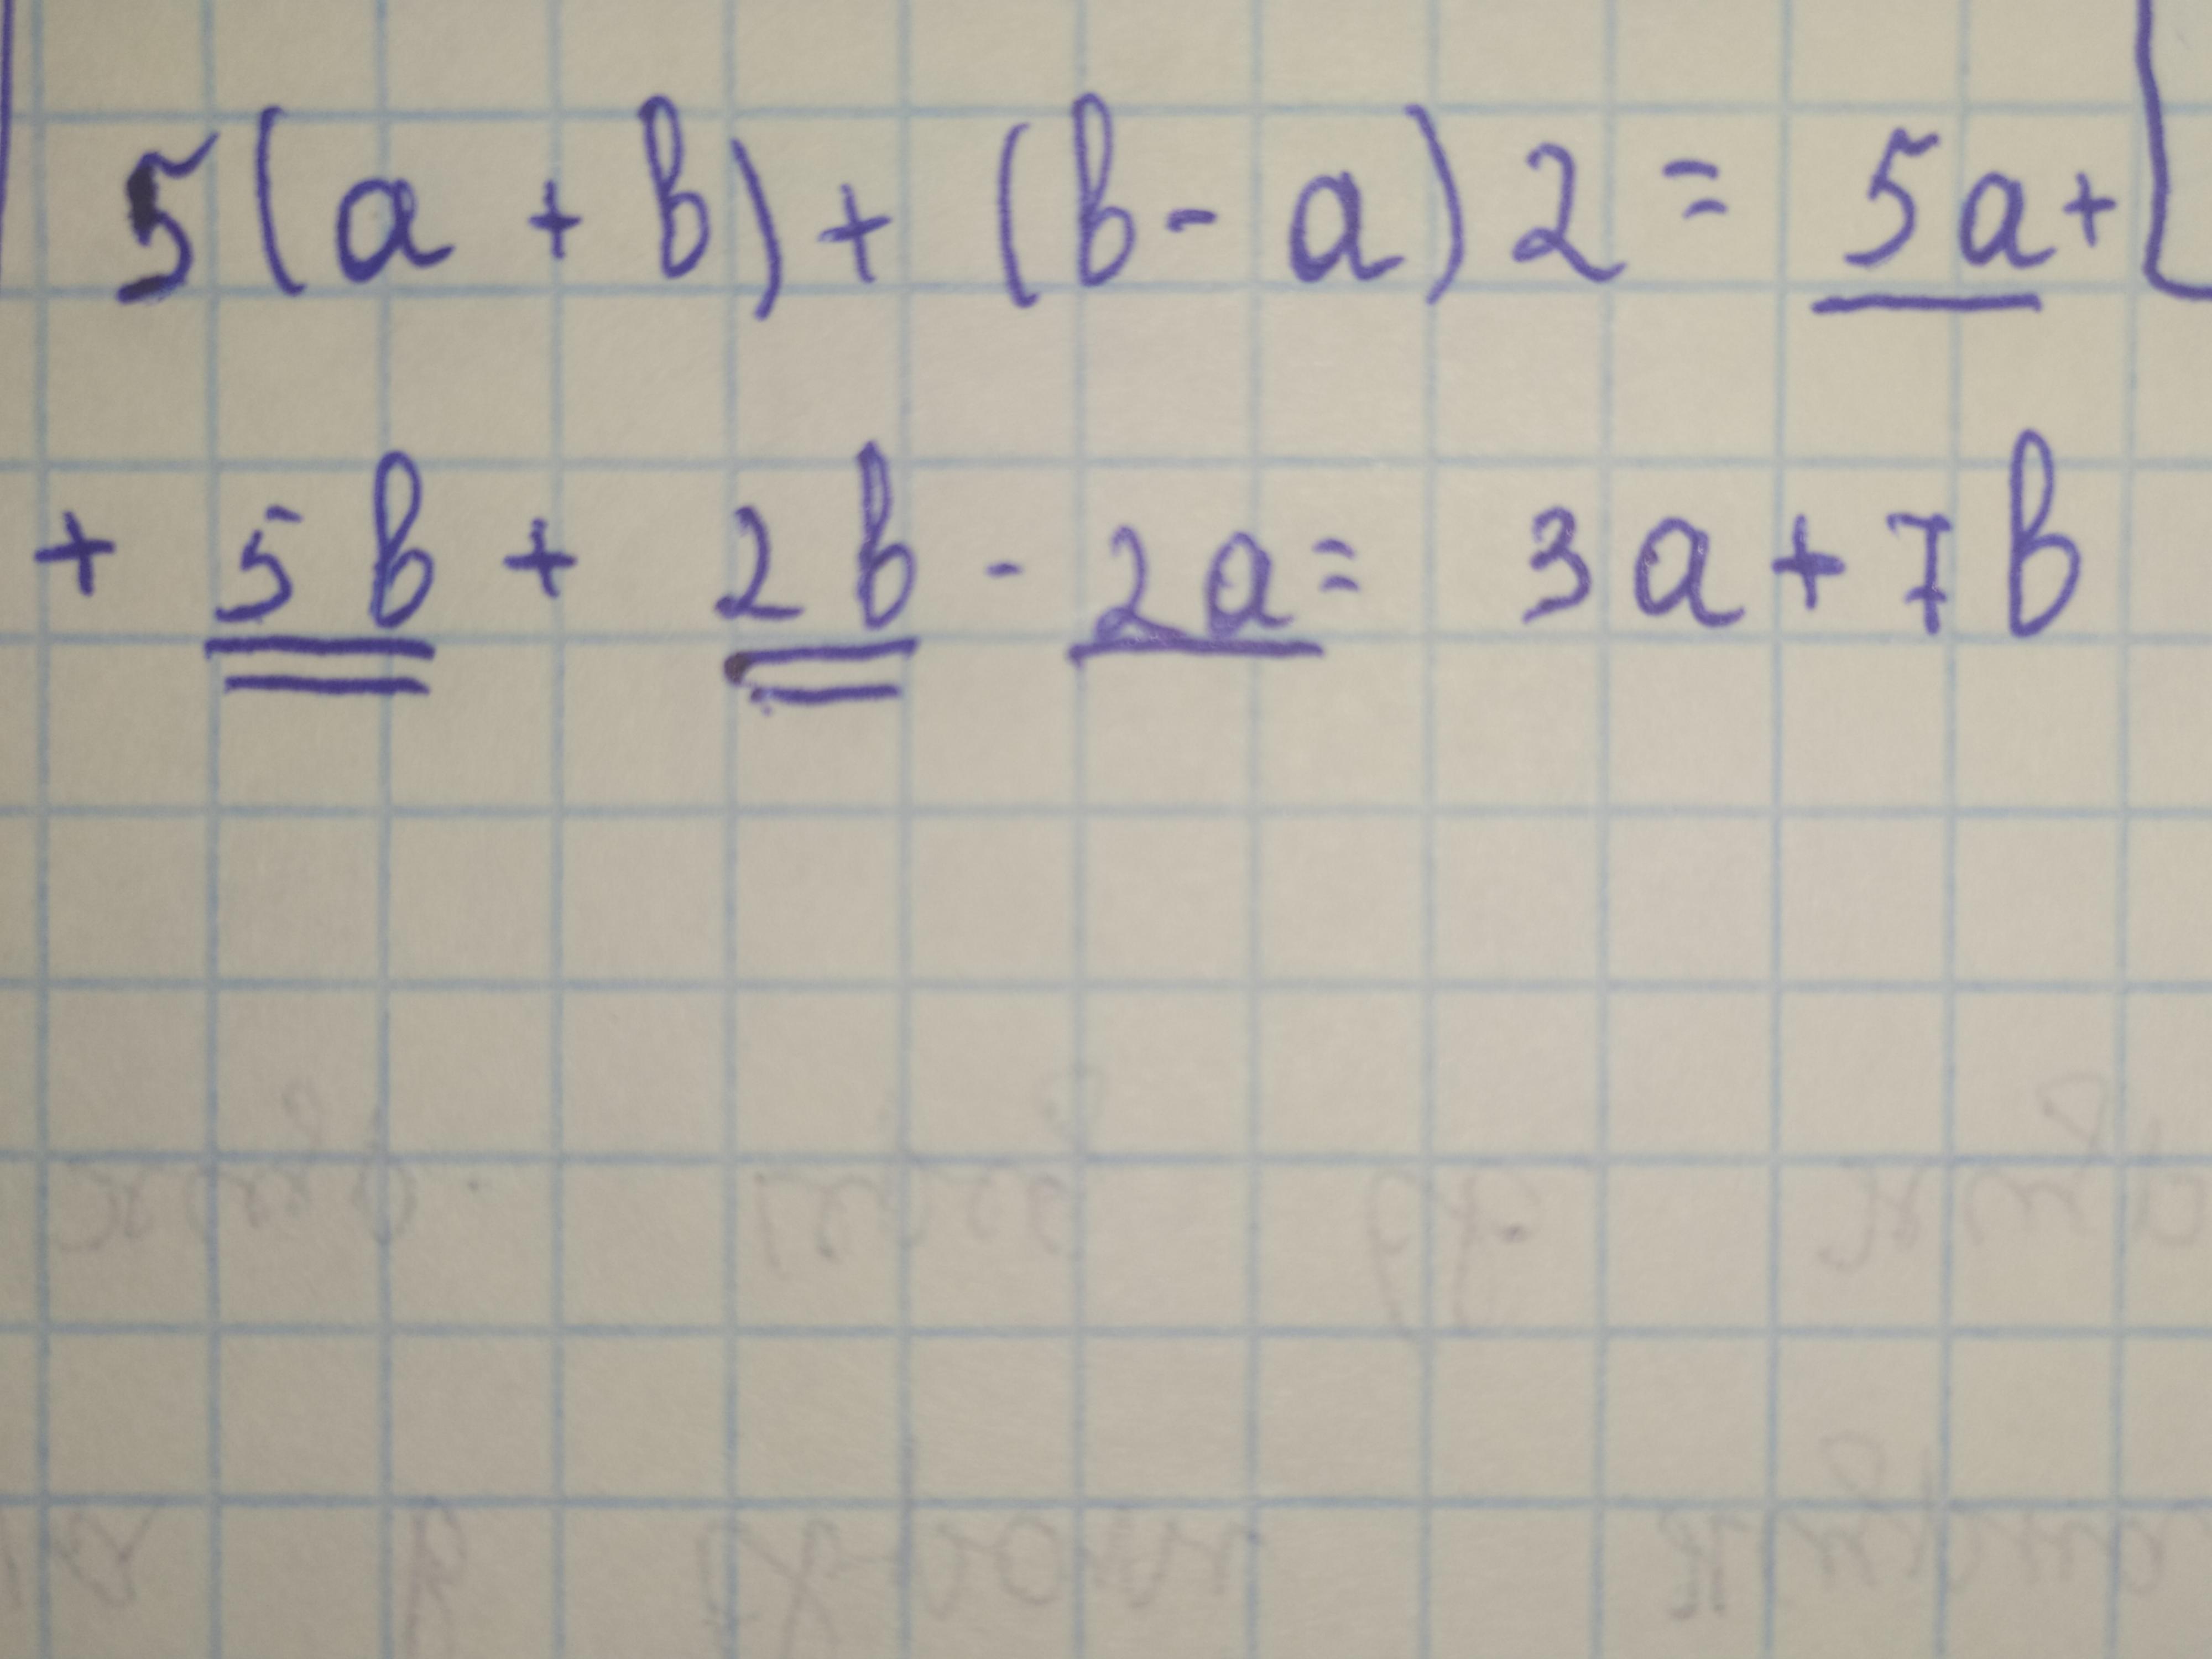 5(a + b) + (b - a)2 = 5a +
+ 5b + 2b - 2a = 3a + 7b